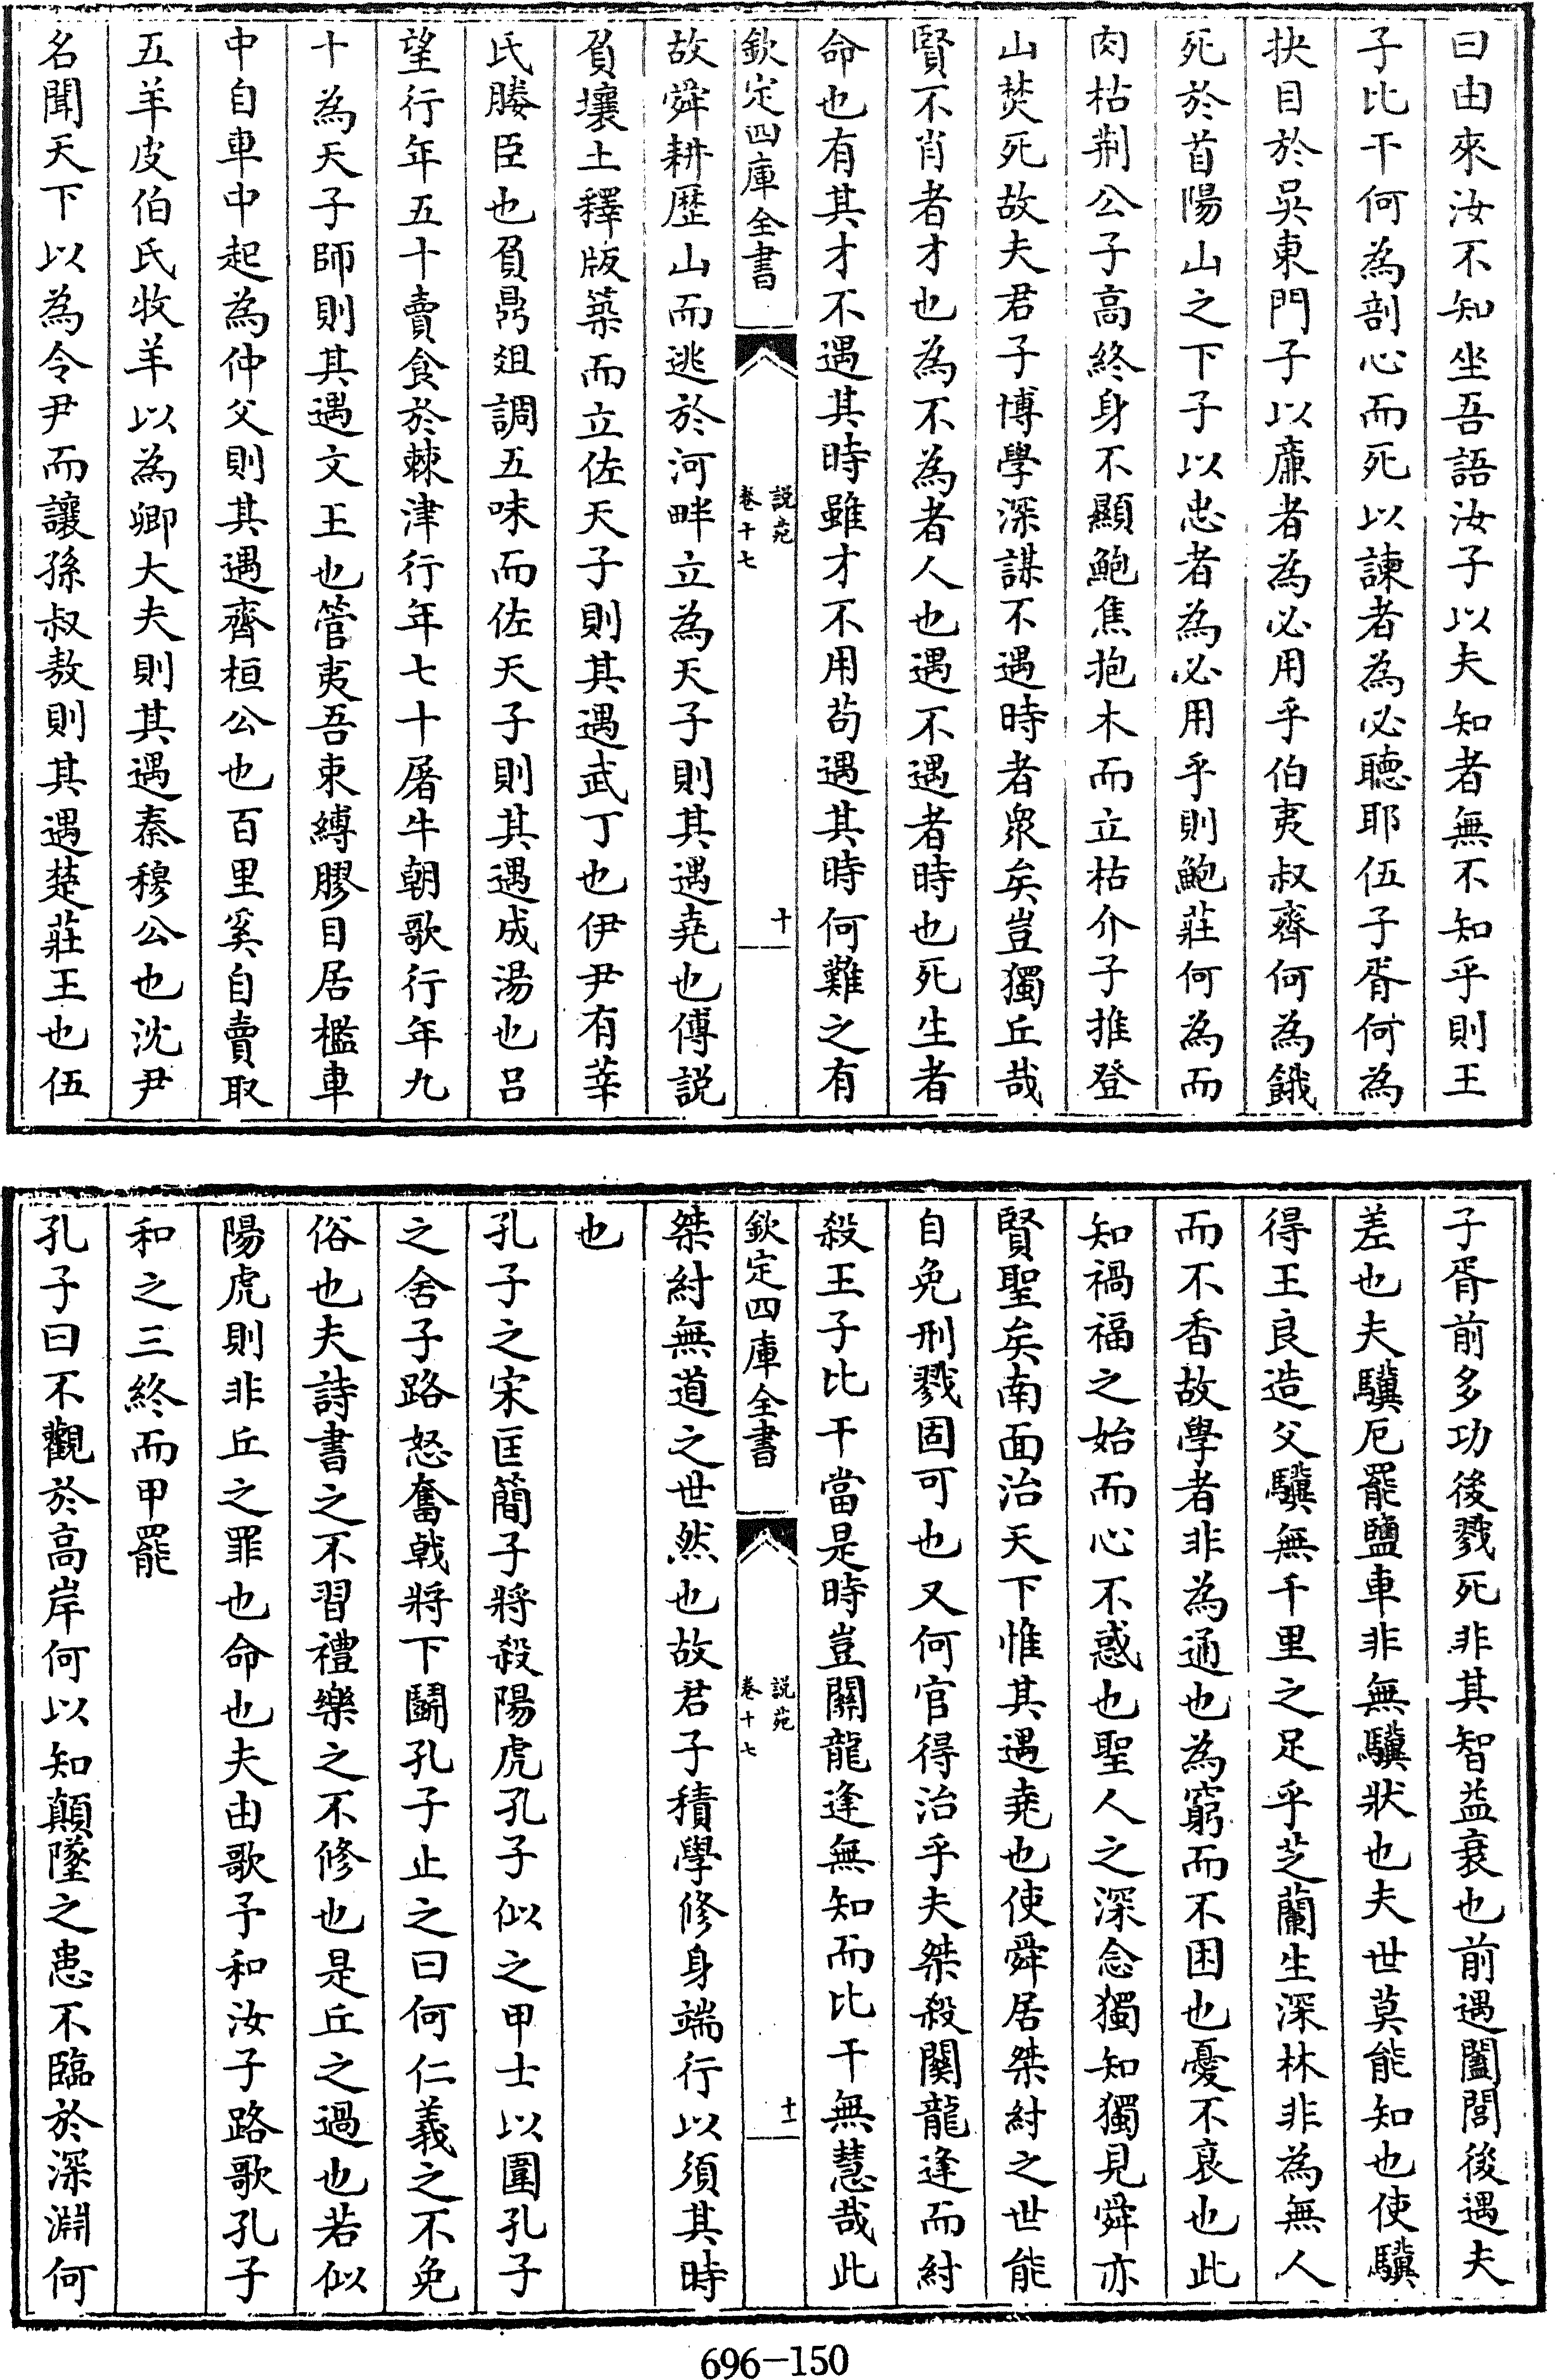 曰由來汝不知坐吾語汝子以夫知者無不知乎則王
子比干何為剖心而死以諫者為必聽耶伍子胥何為
抉目於吳東門子以亷者為必用乎伯夷叔齊何為餓
死於首陽山之下子以忠者為必用乎則鮑莊何為而
肉枯荆公子高終身不顯鮑焦抱木而立枯介子推登
山焚死故夫君子博學深謀不遇時者衆矣豈獨丘哉
賢不肖者才也為不為者人也遇不遇者時也死生者
命也有其才不遇其時雖才不用苟遇其時何難之有
欽定四庫全書
說苑
卷十七
十
故舜耕歷山而逃於河畔立為天子則其遇堯也傅説
負壤土釋版築而立佐天子則其遇武丁也伊尹有莘
氏媵臣也負鼎爼調五味而佐天子則其遇成湯也吕
望行年五十賣食於棘津行年七十屠牛朝歌行年九
十為天子師則其遇文王也管夷吾束縛膠目居檻車
中自車中起為仲父則其遇齊桓公也百里奚自賣取
五羊皮伯氏牧羊以為卿大夫則其遇秦穆公也沈尹
名聞天下以為令尹而讓孫叔敖則其遇楚莊王也伍
子胥前多功後戮死非其智益衰也前遇闔閭後遇夫
差也夫驥厄罷鹽車非無驥狀也夫世莫能知也使驥
得王良造父驥無千里之足乎芝蘭生深林非為無人
而不香故學者非為通也為窮而不困也憂不衰也此
知禍福之始而心不惑也聖人之深念獨知獨見舜亦
賢聖矣南面治天下惟其遇堯也使舜居桀紂之世能
自免刑戮固可也又何官得治乎夫桀殺關龍逢而紂
殺王子比干當是時豈關龍逢無知而比干無慧哉此
欽定四庫全書
說苑
卷十七
十一
桀紂無道之世然也故君子積學修身端行以須其時
也
孔子之宋匡簡子將殺陽虎孔子似之甲士以圍孔子
之舍子路怒奮戟將下鬭孔子止之曰何仁義之不免
俗也夫詩書之不習禮樂之不修也是丘之過也若似
陽虎則非丘之罪也命也夫由歌予和汝子路歌孔子
和之三終而甲罷
孔子曰不觀於高岸何以知顛墜之患不臨於深淵何
696-150